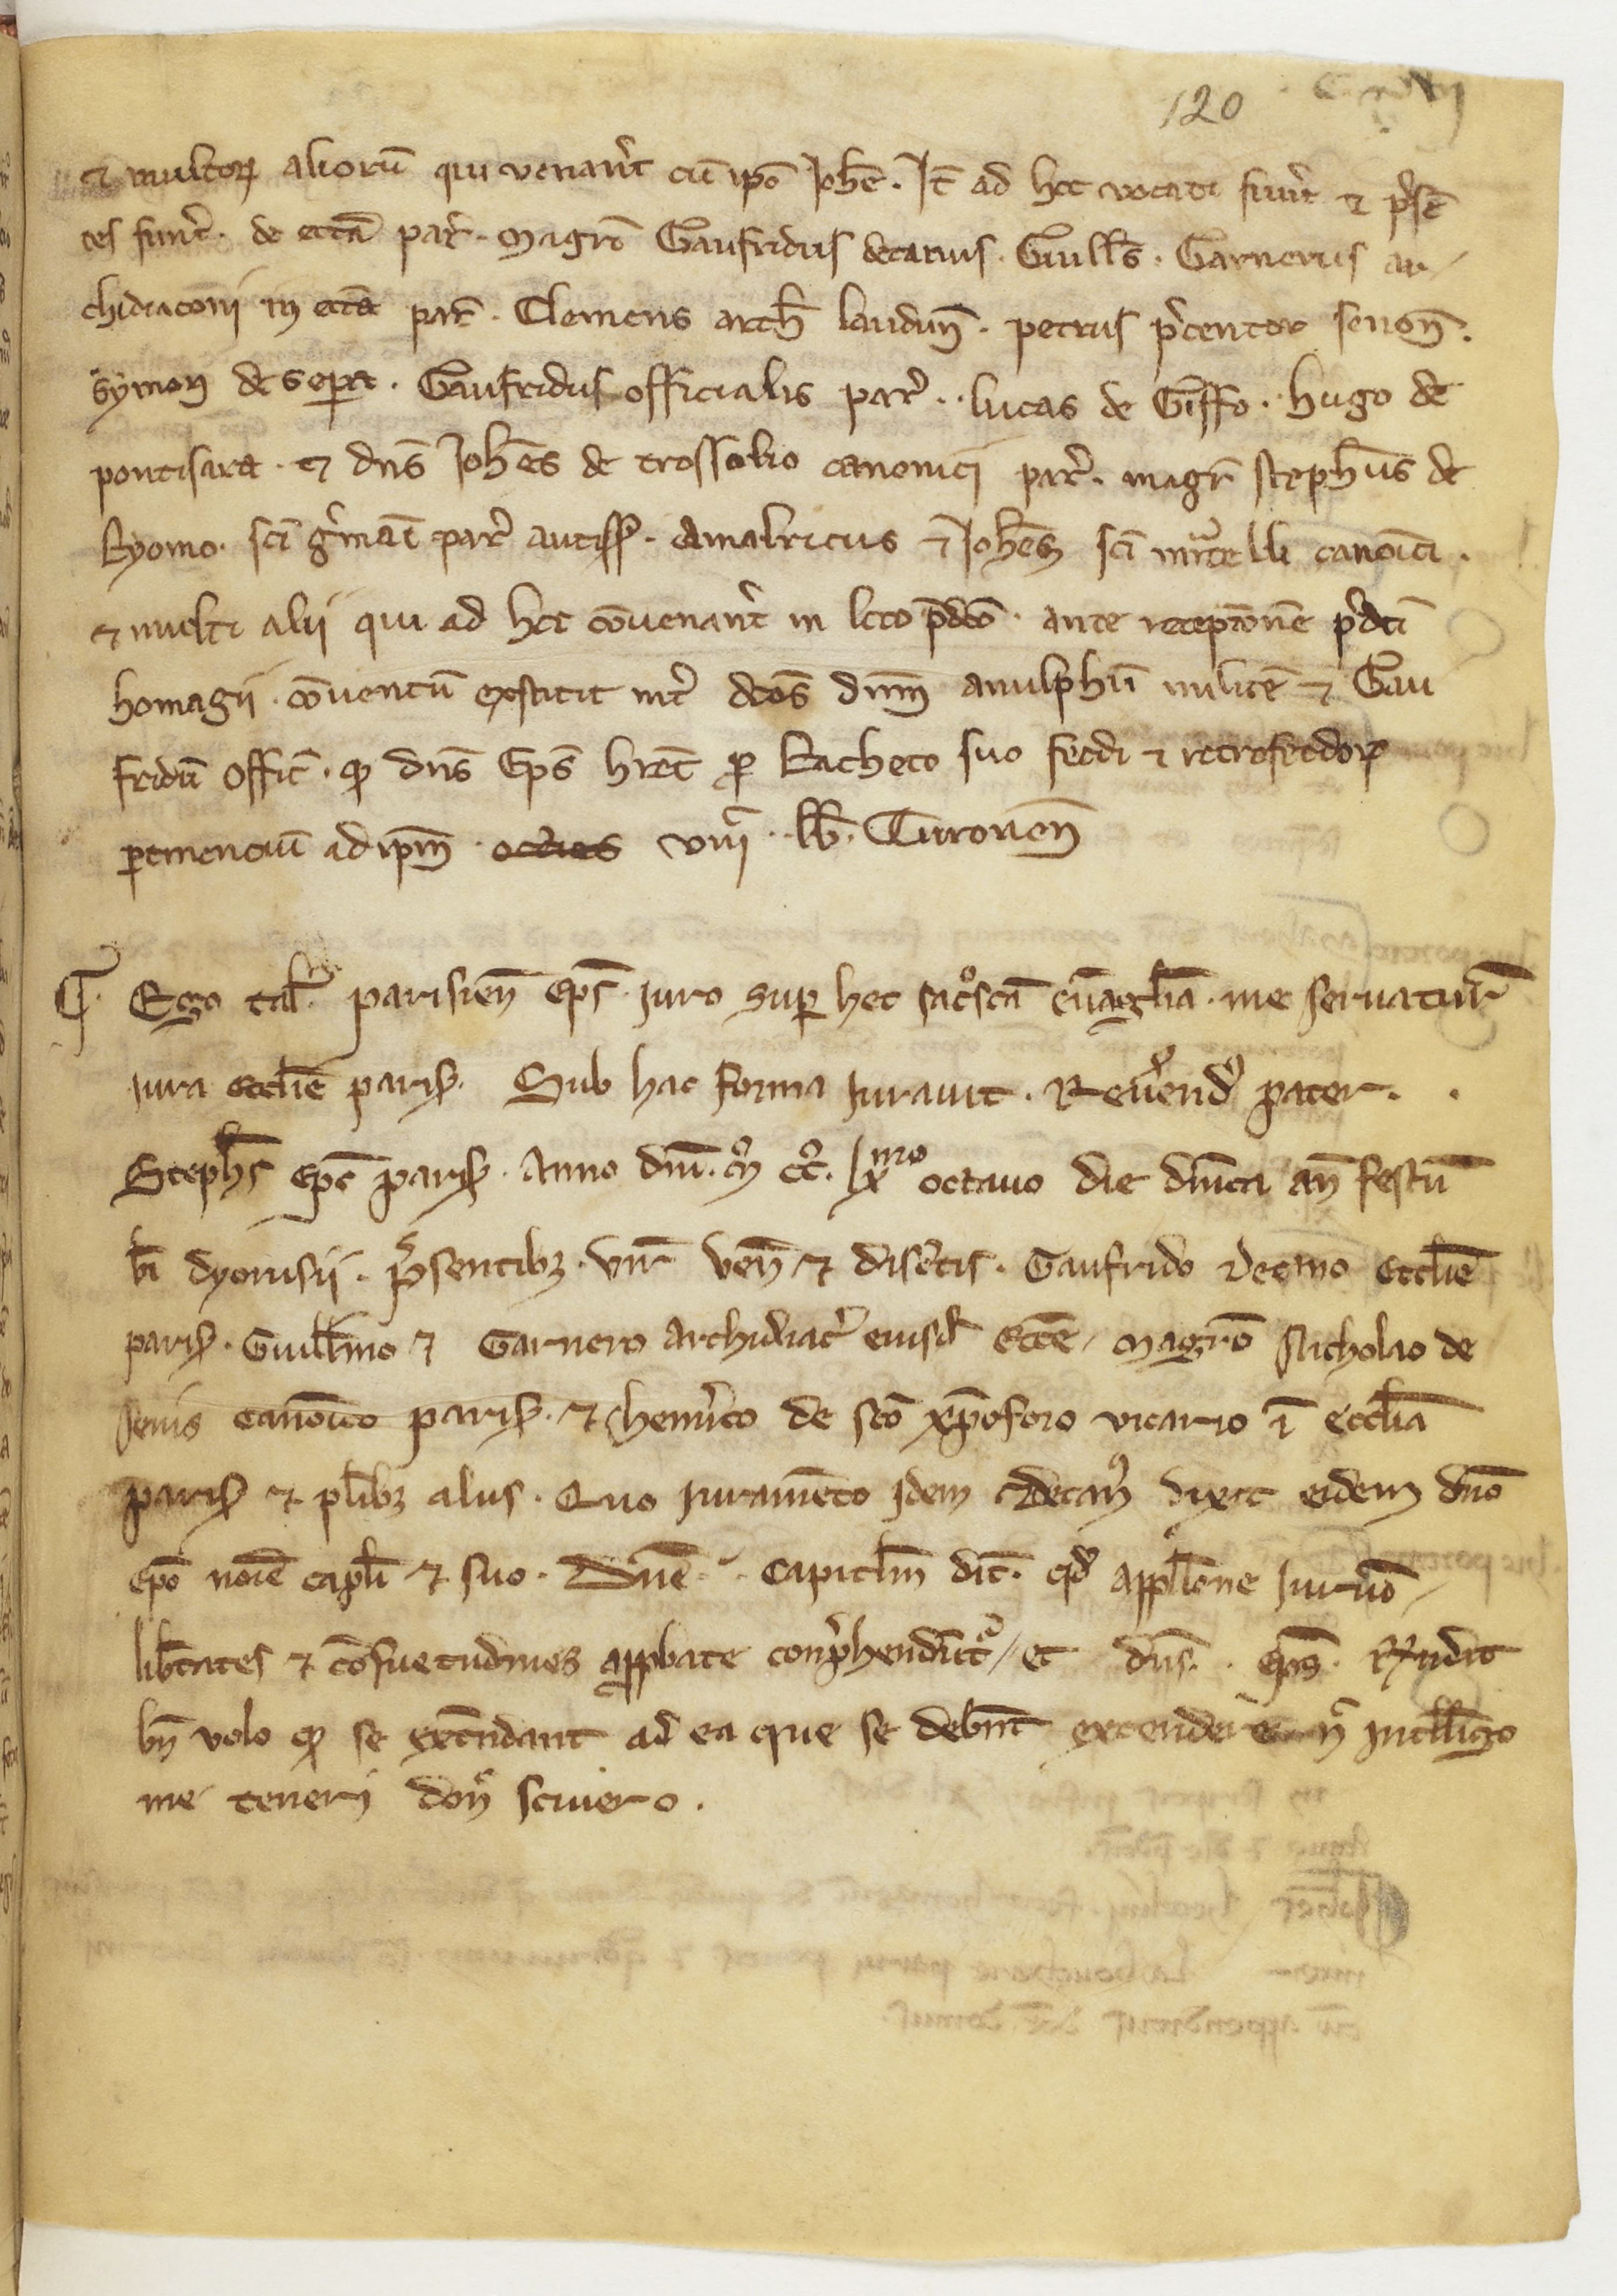 120
⁊ multoꝝ alioꝝ qui venerūt cū ip̄o Joh̄e . Jt̄ ad hec vocati fuerūt ⁊ p̄sē
tes fuerūt . de ecc̄a par̄ . magr̄i Gaufridus decanus . Guill̄s . Garnerus ar
chidiaconi in ecc̄a par̄ . Clemens arch̄ laudun̄ . petrus p̄centor senon̄ .
symon de sepa . Gaufridus officialis par̄ . lucas de Giffo . hugo de
pontisara . ⁊ dn̄s Joh̄es de trossolio canonici par̄ . magr̄ steph̄us de
sc̄i ḡmani par̄ autiss̄ . Amalricus ⁊ Joh̄es sc̄i m̄celli canoīci .
⁊ multi alii qui ad hec cōuenerāt in loco p̄dc̄o . ante receptōnē p̄dc̄i
homagii . cōuentū exstitit int̄ dc̄os dn̄m anulphū militē ⁊ Gau
fridū offic̄ . ꝙ dn̄s Ep̄s hr̄et ꝓ Racheto suo feodi ⁊ retrofeodoꝝ
ꝑtinenciū ad ip̄m . octies viii . lb̄ . Turonen̄
Ego tal̄ . parisien̄ ep̄s . juro suꝑ hec sac̄sc̄a euāgl̄ia . me seruatur̄
jura eccl̄ie paris̄ . Sub hac forma jurauit . Reu̾end̾ pater . .
Steph̄s ep̄s paris̄ . Anno dn̄i . mº ccº . lxmo octauo die dn̄ica an̄ festū
bi dyonisii . p̄sentibꝫ . vir̄ ven̄ ⁊ disc̄tis . Gaufrido decano eccl̄ie
paris̄ . Guill̄mo ⁊ Garnero archidiac̄ eiusd̄ ecc̄e / magr̄o Nicholao de
senis canoīco paris̄ . ⁊ henrico de sc̄o xp̄oforo vicario ī eccl̄ia
paris̄ ⁊ pl̄ibꝫ aliis . Quo juramēto jdem decan̾ dixit eidem dn̄o
ep̄o noīe capl̄i ⁊ suo . Dn̄e . capitl̄m dic̄ . qd̾ appl̄lōne juriū
lib̄tates ⁊ cōsuetudines approbate conp̄hendūt̾ / et dn̄s . ep̄s . r̄ndit
bn̄ volo ꝙ se extendant ad ea que se debn̄t extendere n̄ intell̄igo
me teneri don̄ sciuero .